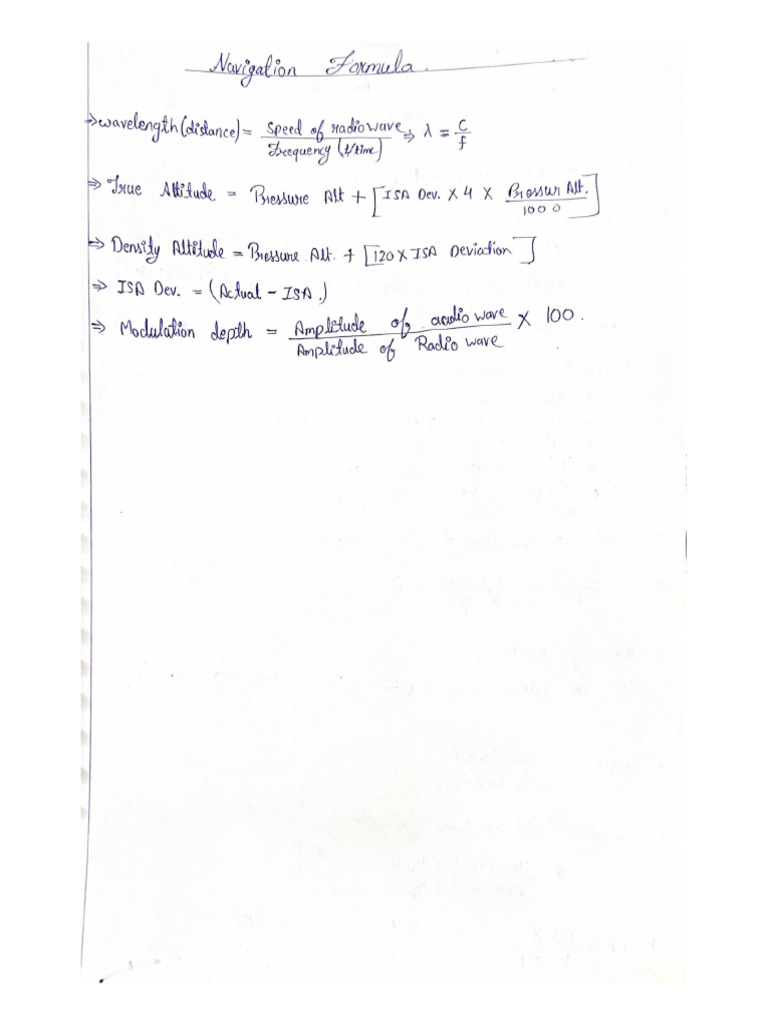 Navigation Formula.
⇒ wavelength (distance) = Speed of radio wave / Frequency (1/time) ⇒ λ = c/f
⇒ True Altitude = Pressure Alt + [ISA Dev. X 4 X Pressur Alt. / 1000]
⇒ Density Altitude = Pressure Alt. + [120 X ISA Deviation]
⇒ ISA Dev. = (Actual - ISA.)
⇒ Modulation depth = Amplitude of audio wave / Amplitude of Radio wave X 100.